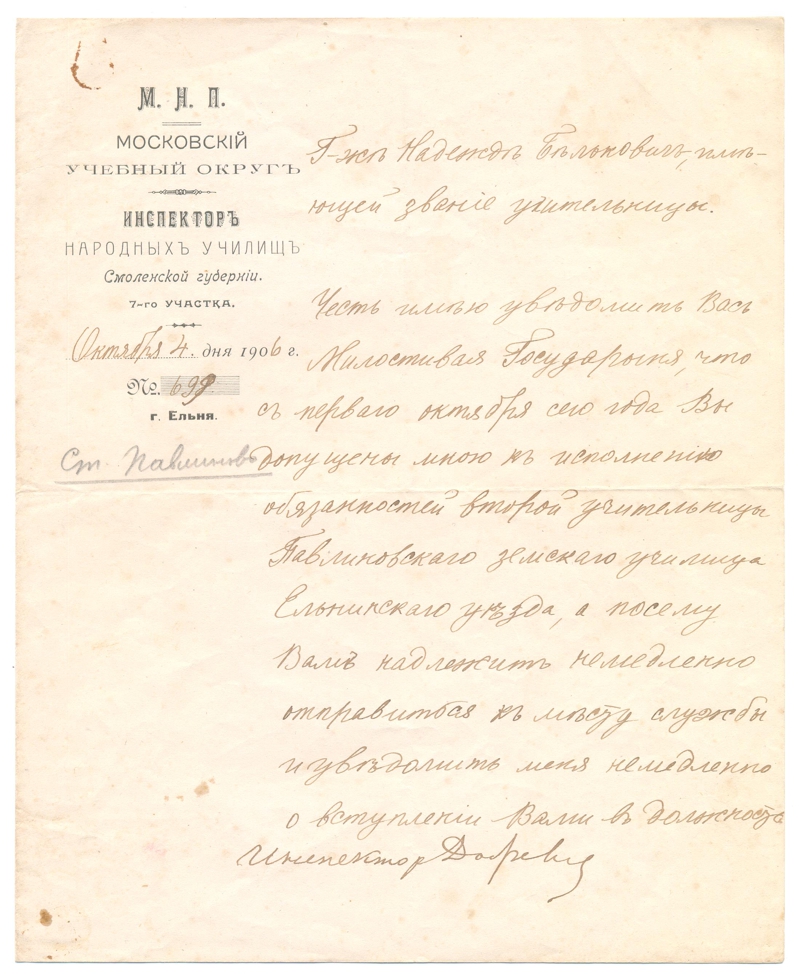 М. Н. П.
МОСКОВСКІЙ
УЧЕБНЫЙ ОКРУГЪ
ИНСПЕКТОРЪ
НАРОДНЫХЪ УЧИЛИЩЪ
Смоленской губерніи.
7-го УЧАСТКА.
Октября 4. дня 1906 г.
№. 698
г. Ельня.
Ст. Павлиновъ
Г-жѣ Надеждѣ Бѣльковичъ, имѣ-
ющей званіе учительницы.
Честь имѣю увѣдомить Васъ
Милостивая Государыня, что
съ перваго октября сего года Вы
допущены мною къ исполненію
обязанностей второй учительницы
Павлиновскаго земскаго училища
Ельнинскаго уѣзда, а посему
Вамъ надлежитъ немедленно
отправиться къ мѣсту службы
и увѣдомить меня немедленно
о вступленіи Вами въ должность
Инспектор